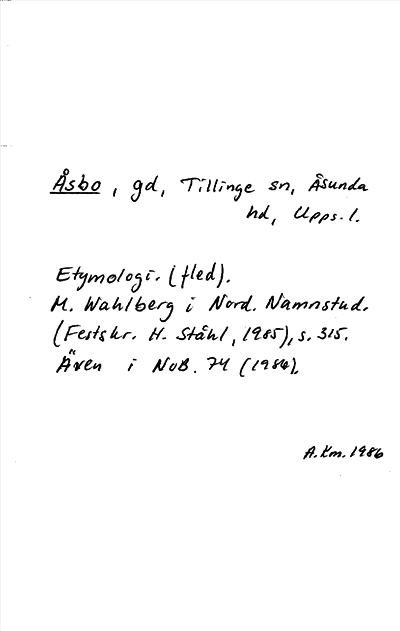 Åsbo, gd, Tillinge sn, Åsunda
hd, Upps. l.
Etymologi. (fled).
M. Wahlberg i Nord. Namnstud.
(Festskr. H. Ståhl, 1985), s. 315.
Även i NoB. 74 (1986).
A.Km. 1986